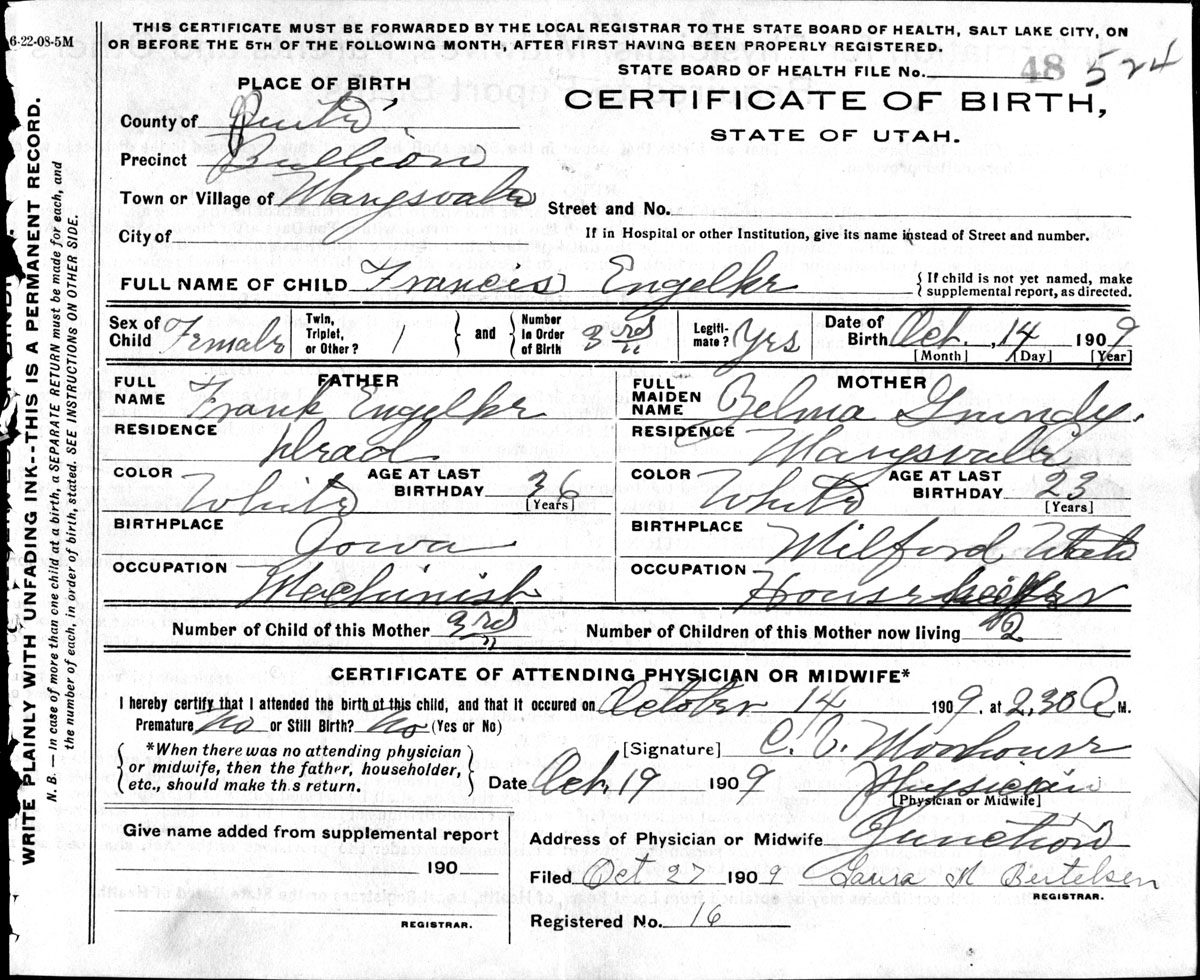 6-22-08-5M
THIS CERTIFICATE MUST BE FORWARDED BY THE LOCAL REGISTRAR TO THE STATE BOARD OF HEALTH, SALT LAKE CITY, ON
OR BEFORE THE 5TH OF THE FOLLOWING MONTH, AFTER FIRST HAVING BEEN PROPERLY REGISTERED.
STATE BOARD OF HEALTH FILE No. 48 524
PLACE OF BIRTH
CERTIFICATE OF BIRTH,
STATE OF UTAH.
County of Piute
Precinct Bullion
Town or Village of Marysvale
Street and No.
City of
If in Hospital or other Institution, give its name instead of Street and number.
FULL NAME OF CHILD Frances Engelke
{ If child is not yet named, make
supplemental report, as directed.
Sex of Child Female
Twin, Triplet, or Other? /
} and {
Number in Order of Birth 3rd
Legiti-mate? Yes
Date of Birth Oct. 14 1909
[Month] [Day] [Year]
FATHER
FULL NAME Frank Engelke
RESIDENCE Dead
COLOR White
AGE AT LAST BIRTHDAY 36
[Years]
BIRTHPLACE Iowa
OCCUPATION Machinist
MOTHER
FULL MAIDEN NAME Zelma Grundy
RESIDENCE Marysvale
COLOR White
AGE AT LAST BIRTHDAY 23
[Years]
BIRTHPLACE Milford Utah
OCCUPATION Housekeeper
Number of Child of this Mother 3rd
Number of Children of this Mother now living 2
CERTIFICATE OF ATTENDING PHYSICIAN OR MIDWIFE*
I hereby certify that I attended the birth of this child, and that it occured on October 14 1909, at 2,30 A M.
Premature No or Still Birth? No (Yes or No)
{ *When there was no attending physician
or midwife, then the father, householder,
etc., should make this return. }
[Signature] C. V. Moorhouse
Date Oct. 19 1909 Physician
[Physician or Midwife]
Give name added from supplemental report
190
REGISTRAR.
Address of Physician or Midwife Junction
Filed Oct 27 1909 Laura M Bertelsen
REGISTRAR.
Registered No. 16
WRITE PLAINLY WITH UNFADING INK--THIS IS A PERMANENT RECORD.
N. B. — In case of more than one child at a birth, a SEPARATE RETURN must be made for each, and
the number of each, in order of birth, stated. SEE INSTRUCTIONS ON OTHER SIDE.